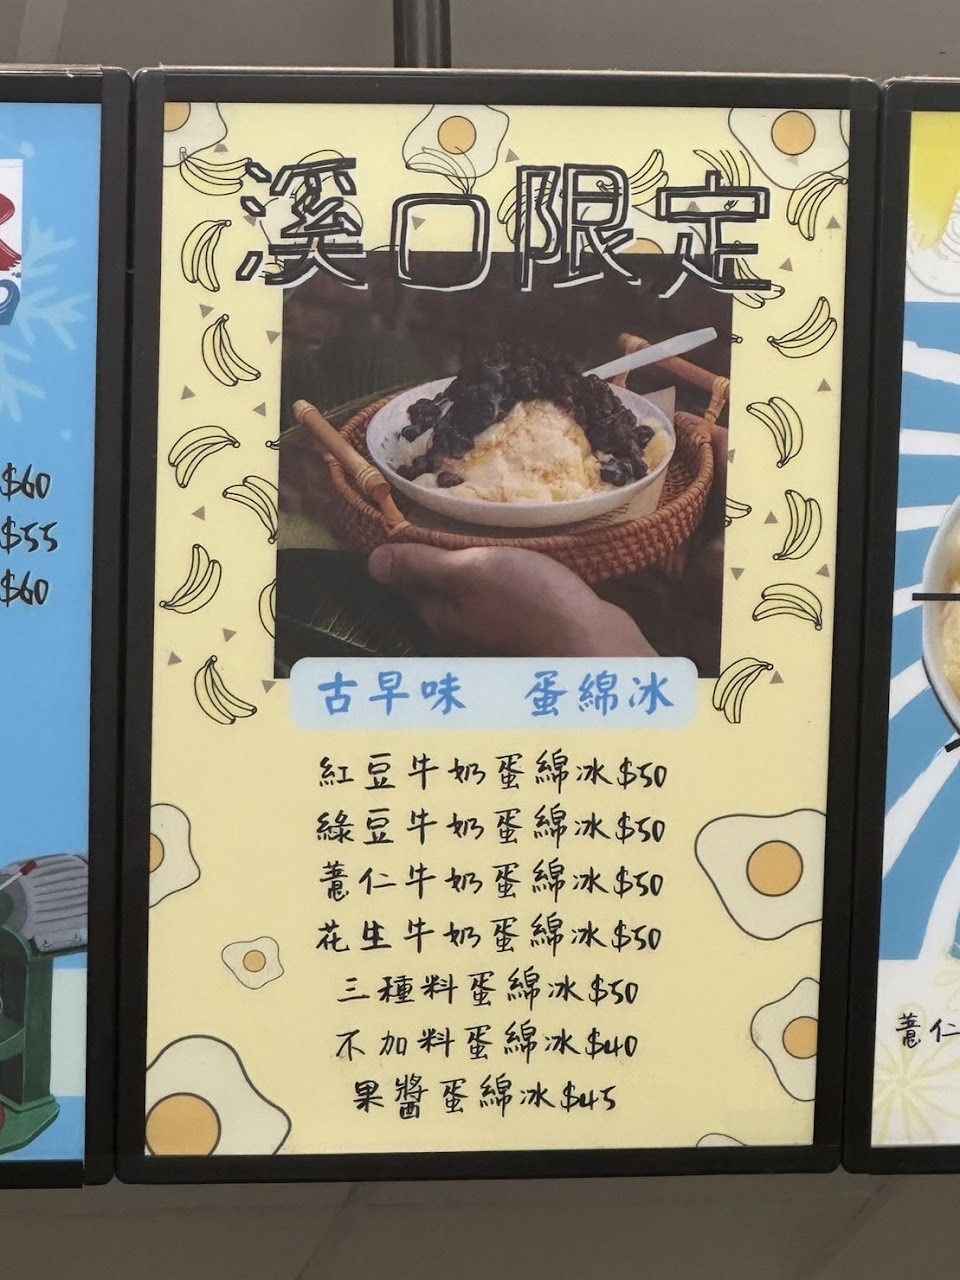 溪口限定
古早味 蛋綿冰
紅豆牛奶蛋綿冰$50
綠豆牛奶蛋綿冰$50
薏仁牛奶蛋綿冰$50
花生牛奶蛋綿冰$50
三種料蛋綿冰$50
不加料蛋綿冰$40
果醬蛋綿冰$45
$60
$55
$60
薏仁